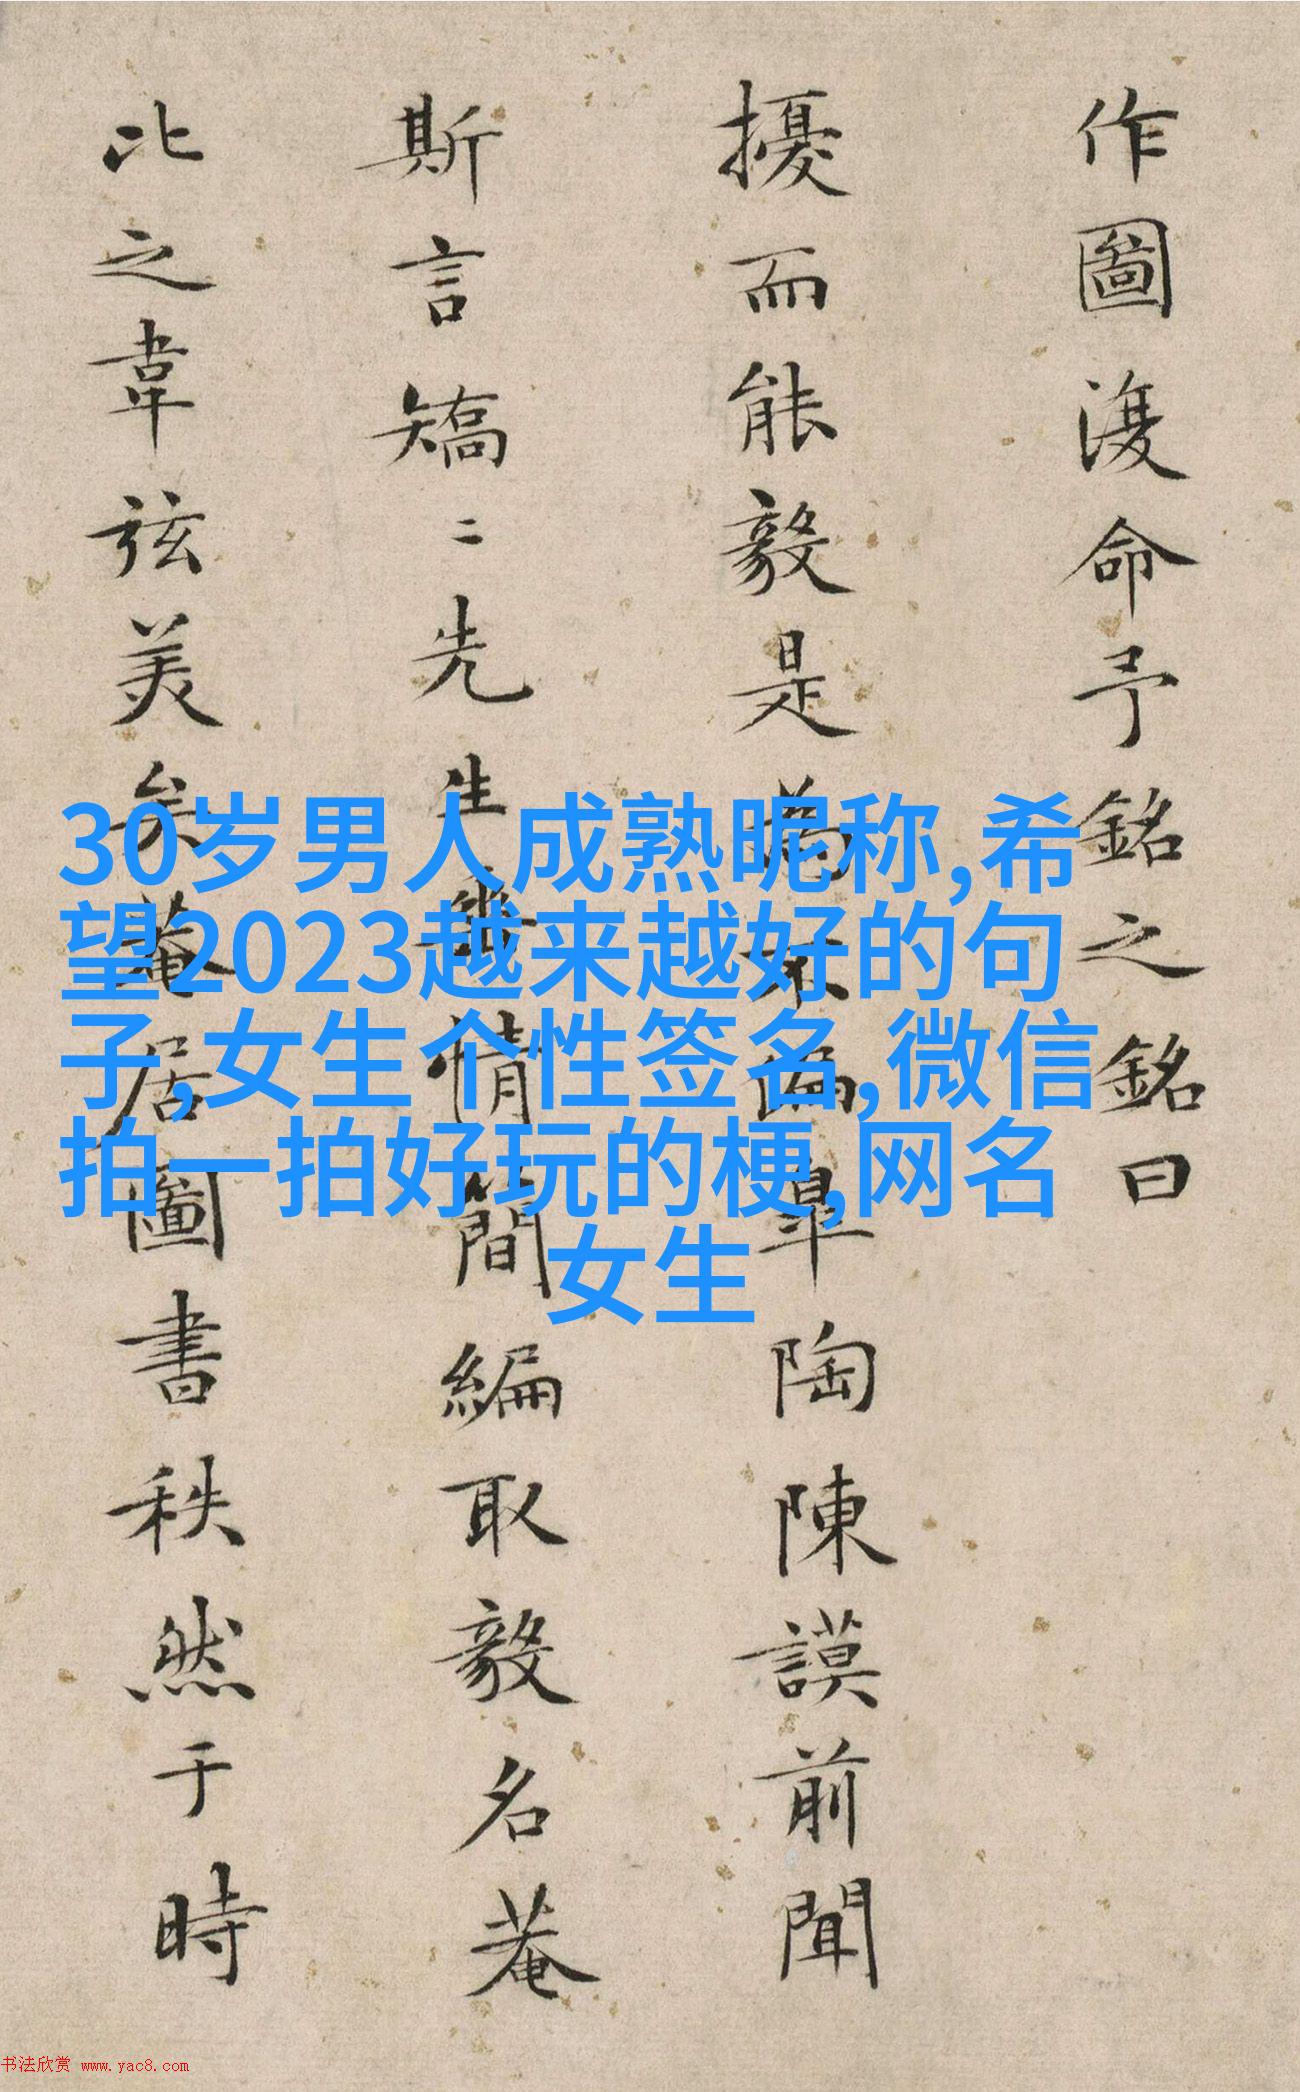 作圖復命予銘之銘曰
擾而能毅是為不偏臯陶陳謨前聞
斯言矯二先生情簡編取毅名菴
比之韋弦美矣菴居圖書秩然于時
30岁男人成熟昵称,希
望2023越来越好的句
子,女生个性签名,微信
拍一拍好玩的梗,网名
女生
书法欣赏 www.yac8.com